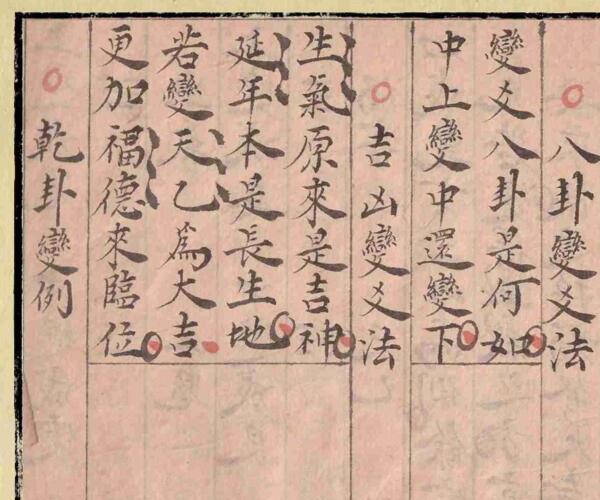 八卦變爻法
變爻八卦是何如
中上變中還變下
吉凶變爻法
生氣原來是吉神
延年本是長生地
若變天乙爲大吉
更加福德來臨位
乾卦變例